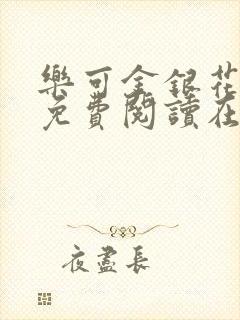 樂可金銀花
免費閱讀在
夜盡長